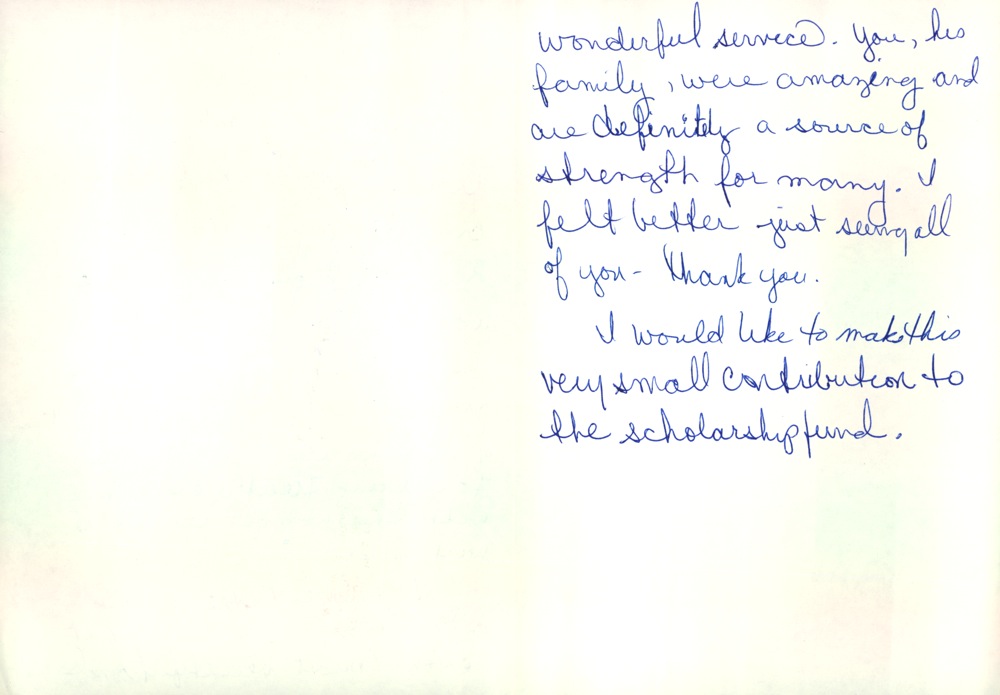 wonderful service. You, his
family, were amazing and
are definitely a source of
strength for many. I
felt better just seeing all
of you - Thank you.
I would like to make this
very small contribution to
the scholarship fund.